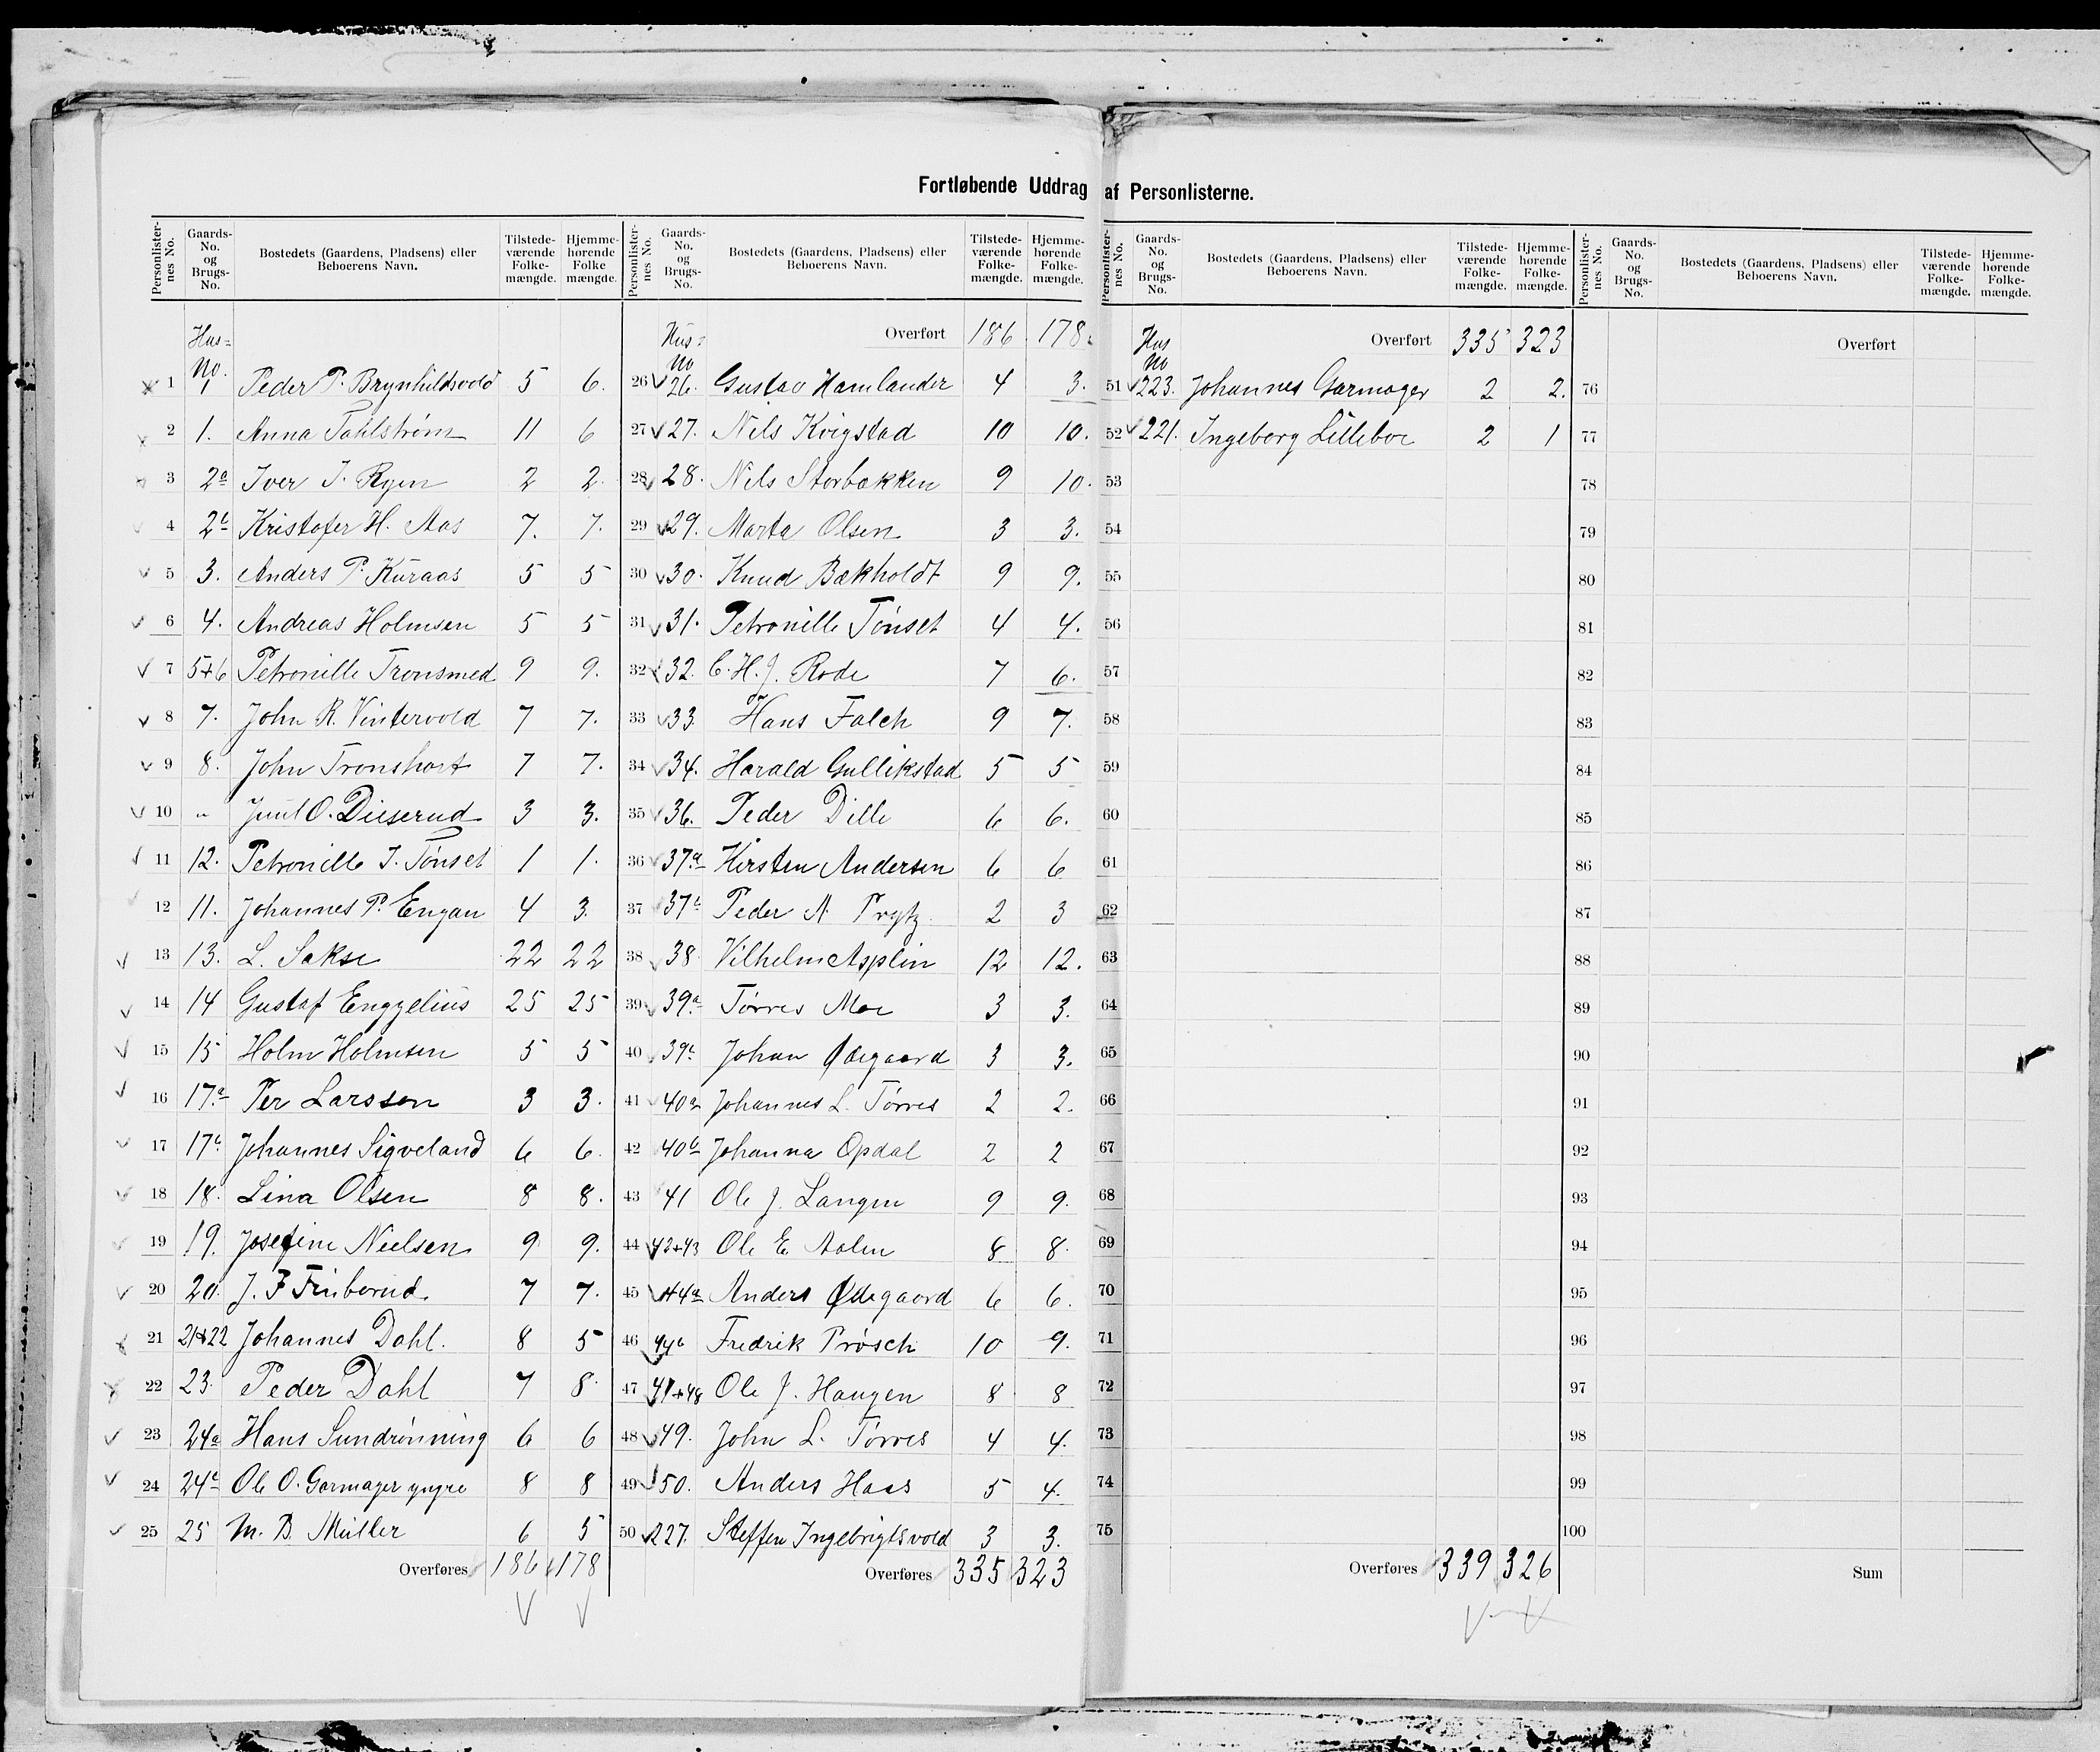 Fortløbende Uddrag af Personlisterne.
Personlisternes No. Gaards-No. og Brugs-No. Bostedets (Gaardens, Pladsens) eller Beboerens Navn. Tilstedeværende Folkemængde. Hjemmehørende Folkemængde.
Hus-No.
1 1 Peder P. Brynhildsvold 5 6.
2 1. Anna Tahlstrøm 11 6
3 2a Iver J. Ryen 2 2.
4 2b Kristofer H. Aas 7. 7.
5 3. Anders P. Kuraas 5 5
6 4. Andreas Holmsen 5 5
7 5+6 Petronille Tronsmed 9 9.
8 7. John R. Vintervold 7 7.
9 8. John Tronshart 7 7.
10 " Juul O. Dieserud 3 3.
11 12. Petronille J. Tønset 1 1.
12 11. Johannes P. Engan 4 3.
13 13. L. Sakse 22 22
14 14 Gustaf Enggelius 25 25
15 15 Holm Holmsen 5 5
16 17a Per Larsson 3 3.
17 17b Johannes Sigveland 6 6.
18 18. Lina Olsen 8 8.
19 19. Josefine Nielsen 9 9.
20 20. J. F Finborud 7 7.
21 21+22 Johannes Dahl. 8 5
22 23. Peder Dahl 7 8
23 24a Hans Sundrønning 6 6
24 24b Ole O. Garmager yngre 8 8
25 25 M. B. Müller 6 5
Overføres 186 178
Personlisternes No. Gaards-No. og Brugs-No. Bostedets (Gaardens, Pladsens) eller Beboerens Navn. Tilstedeværende Folkemængde. Hjemmehørende Folkemængde.
Hus-No Overført 186 178.
26 26. Gustav Hamlander 4 3.
27 27. Nils Kvigstad 10 10.
28 28. Nils Storbækken 9 10.
29 29. Marta Olsen 3 3.
30 30. Knud Bækholdt 9 9.
31 31. Petronille Tønset 4 4.
32 32. C. H. J. Rode 7 6.
33 33 Hans Falch 9 7.
34 34. Harald Gullikstad 5 5
35 36. Peder Dille 6 6.
36 37a Kirsten Andersen 6 6
37 37b Peder N. Prytz 2 3
38 38 Vilhelm Asplin 12 12.
39 39a Tørres Moe 3 3.
40 39b Johan Ødegaard 3 3.
41 40a Johannes L. Tørres 2 2.
42 40b Johanna Opdal 2 2
43 41 Ole J. Langen 9 9.
44 42+43 Ole E. Aalen 8 8.
45 44a Anders Ødegaard 6 6.
46 44b Fredrik Prøsch 10 9.
47 47+48 Ole J. Haugen 8 8
48 49. John L. Tørres 4 4.
49 50. Anders Haas 5 4.
50 227. Steffen Ingebrigtsvold 3 3.
Overføres 335 323
Personlisternes No. Gaards-No. og Brugs-No. Bostedets (Gaardens, Pladsens) eller Beboerens Navn. Tilstedeværende Folkemængde. Hjemmehørende Folkemængde.
Hus No Overført 335 323
51 223. Johannes Garmager 2 2.
52 221. Ingeborg Lilleboe 2 1
53
54
55
56
57
58
59
60
61
62
63
64
65
66
67
68
69
70
71
72
73
74
75
Overføres 339 326
Personlisternes No. Gaards-No. og Brugs-No. Bostedets (Gaardens, Pladsens) eller Beboerens Navn. Tilstedeværende Folkemængde. Hjemmehørende Folkemængde.
Overført
76
77
78
79
80
81
82
83
84
85
86
87
88
89
90
91
92
93
94
95
96
97
98
99
100
Sum